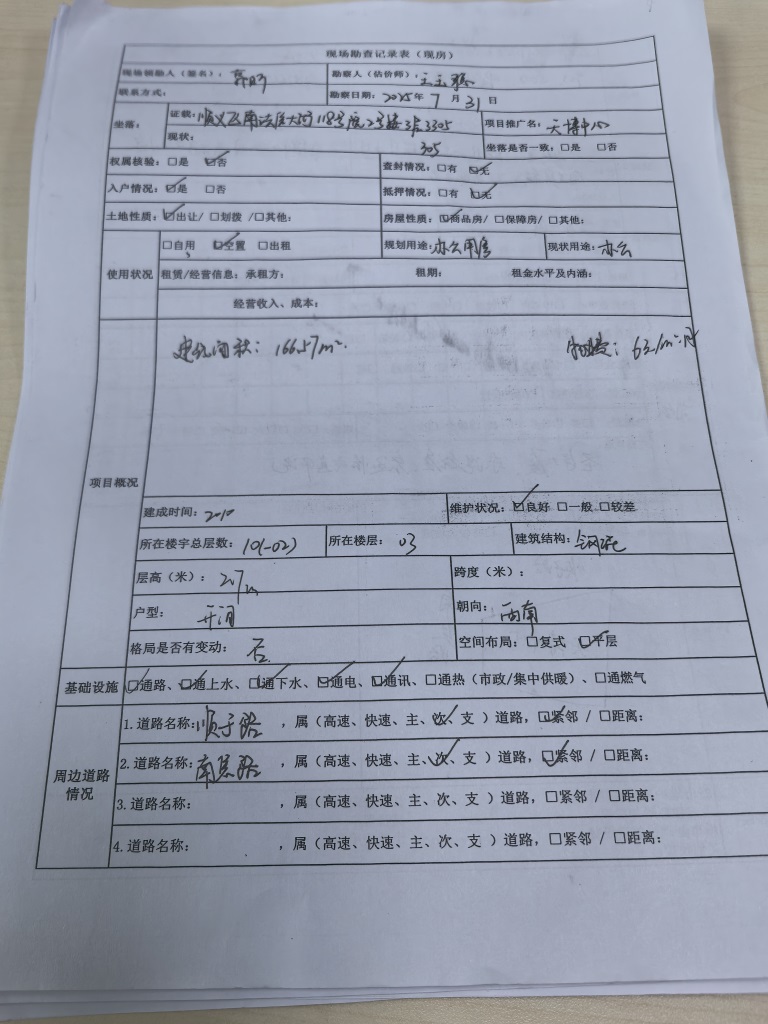 现场勘查记录表（现房）
现场领勘人（签名）：
勘察人（估价师）：王玉
联系方式：
勘察日期：2025年 7 月 31 日
坐落：
证载：顺义区南法信大街118号院2号楼3层3305
项目推广名：天博中心
现状： 305
坐落是否一致：□是 □否
权属核验：□是 ☑否
查封情况：□有 ☑无
入户情况：☑是 □否
抵押情况：□有 ☑无
土地性质：☑出让/ □划拨 /□其他：
房屋性质：☑商品房/ □保障房/ □其他：
使用状况
□自用 ☑空置 □出租
规划用途：办公用房
现状用途：办公
租赁/经营信息：承租方： 租期： 租金水平及内涵：
经营收入、成本：
项目概况
建筑面积：166.57m².
物业费：6元/m²·月
建成时间：2010
维护状况：☑良好 □一般 □较差
所在楼宇总层数：10(-02)
所在楼层：03
建筑结构：钢混
层高（米）：
跨度（米）：
户型：开间
朝向：西南
格局是否有变动：否
空间布局：□复式 ☑平层
基础设施
☑通路、☑通上水、☑通下水、☑通电、☑通讯、□通热（市政/集中供暖）、□通燃气
周边道路情况
1.道路名称：顺于路 ，属（高速、快速、主、次、支 ）道路，☑紧邻 / □距离：
2.道路名称：南焦路 ，属（高速、快速、主、次、支 ）道路，☑紧邻 / □距离：
3.道路名称： ，属（高速、快速、主、次、支 ）道路，□紧邻 / □距离：
4.道路名称： ，属（高速、快速、主、次、支 ）道路，□紧邻 / □距离：